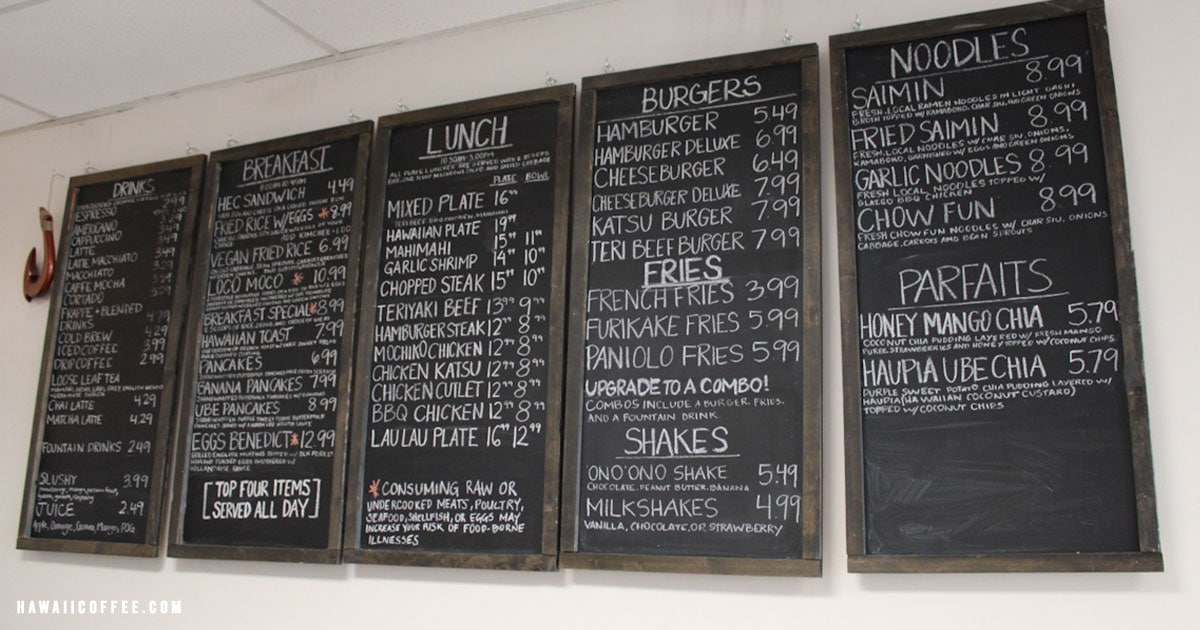 DRINKS
ESPRESSO
AMERICANO 3.49
CAPPUCCINO
LATTE 3.49
LATTE MACCHIATO
MACCHIATO
CAFFE MOCHA
CORTADO
FRAPPE + BLENDED
DRINKS 4.79
COLD BREW 4.29
ICED COFFEE 3.99
DRIP COFFEE 2.99
LOOSE LEAF TEA
CHAI LATTE 4.29
MATCHA LATTE 4.29
FOUNTAIN DRINKS 2.49
SLUSHY 3.99
JUICE 2.49
Apple, Orange, Guava, Mango, POG
BREAKFAST
HEC SANDWICH 4.49
FRIED RICE W/EGGS *8.99
ADD KIMCHEE +1.00
VEGAN FRIED RICE 6.99
LOCO MOCO * 10.99
BREAKFAST SPECIAL*8.99
HAWAIIAN TOAST 7.99
PANCAKES 6.99
BANANA PANCAKES 7.99
UBE PANCAKES 8.99
EGGS BENEDICT*12.99
HOLLANDAISE SAUCE
[TOP FOUR ITEMS
SERVED ALL DAY]
LUNCH
10:30AM-3:00PM
PLATE BOWL
MIXED PLATE 16⁹⁹
HAWAIIAN PLATE 19⁹⁹
MAHIMAHI 15⁹⁹ 11⁹⁹
GARLIC SHRIMP 14⁹⁹ 10⁹⁹
CHOPPED STEAK 15⁹⁹ 10⁹⁹
TERIYAKI BEEF 13⁹⁹ 9⁹⁹
HAMBURGER STEAK 12⁹⁹ 8⁹⁹
MOCHIKO CHICKEN 12⁹⁹ 8⁹⁹
CHICKEN KATSU 12⁹⁹ 8⁹⁹
CHICKEN CUTLET 12⁹⁹ 8⁹⁹
BBQ CHICKEN 12⁹⁹ 8⁹⁹
LAU LAU PLATE 16⁹⁹ 12⁹⁹
*CONSUMING RAW OR
UNDERCOOKED MEATS, POULTRY,
SEAFOOD, SHELLFISH, OR EGGS MAY
INCREASE YOUR RISK OF FOOD-BORNE
ILLNESSES
BURGERS
HAMBURGER 5.49
HAMBURGER DELUXE 6.99
CHEESEBURGER 6.49
CHEESEBURGER DELUXE 7.99
KATSU BURGER 7.99
TERI BEEF BURGER 7.99
FRIES
FRENCH FRIES 3.99
FURIKAKE FRIES 5.99
PANIOLO FRIES 5.99
UPGRADE TO A COMBO!
COMBOS INCLUDE A BURGER, FRIES,
AND A FOUNTAIN DRINK.
SHAKES
'ONO 'ONO SHAKE 5.49
CHOCOLATE, PEANUT BUTTER, BANANA
MILKSHAKES 4.99
VANILLA, CHOCOLATE, OR STRAWBERRY
NOODLES
SAIMIN 8.99
FRESH, LOCAL RAMEN NOODLES IN LIGHT DASHI
BROTH TOPPED W/ KAMABOKO, CHAR SIU, AND GREEN ONIONS
FRIED SAIMIN 8.99
FRESH LOCAL NOODLES W/ CHAR SIU, ONIONS,
KAMABOKO, GARNISHED W/ EGGS AND GREEN ONIONS
GARLIC NOODLES 8.99
FRESH LOCAL NOODLES TOPPED W/
GLAZED BBQ CHICKEN
CHOW FUN 8.99
FRESH CHOW FUN NOODLES W/ CHAR SIU, ONIONS,
CABBAGE, CARROTS AND BEAN SPROUTS
PARFAITS
HONEY MANGO CHIA 5.79
COCONUT CHIA PUDDING LAYERED W/ FRESH MANGO
PUREE, STRAWBERRIES AND HONEY TOPPED W/ COCONUT CHIPS
HAUPIA UBE CHIA 5.79
PURPLE SWEET POTATO CHIA PUDDING LAYERED W/
HAUPIA (HAWAIIAN COCONUT CUSTARD)
TOPPED W/ COCONUT CHIPS
HAWAIICOFFEE.COM